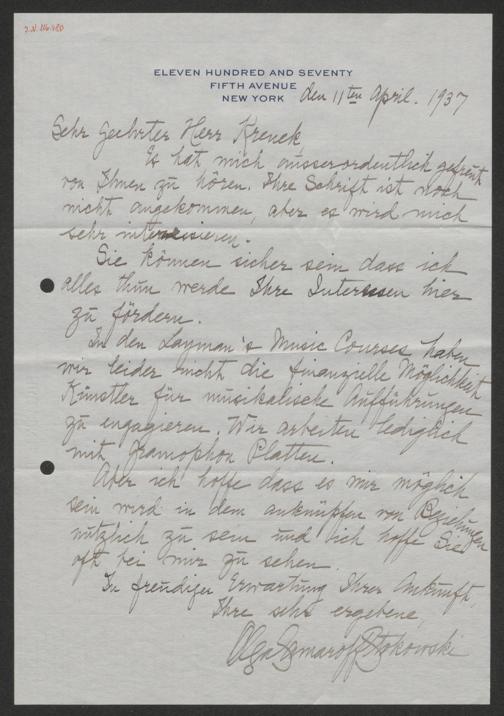 ELEVEN HUNDRED AND SEVENTY
FIFTH AVENUE
NEW YORK
den 11ten April. 1937
Sehr geehrter Herr Krenek,
Es hat mich ausserordentlich gefreut
von Ihnen zu hören. Ihre Schrift ist noch
nicht angekommen, aber es wird mich
sehr interessieren.
Sie können sicher sein dass ich
alles thun werde Ihre Interessen hier
zu fördern.
In den Layman's Music Courses haben
wir leider nicht die finanzielle Möglichkeit
Künstler für musikalische Aufführungen
zu engagieren. Wir arbeiten lediglich
mit Gramophon Platten.
Aber ich hoffe dass es mir möglich
sein wird in dem anknüpfen von Beziehungen
nützlich zu sein und ich hoffe Sie
oft bei mir zu sehen.
In freudiger Erwartung Ihrer Ankunft,
Ihre sehr ergebene,
Olga Samaroff Stokowski